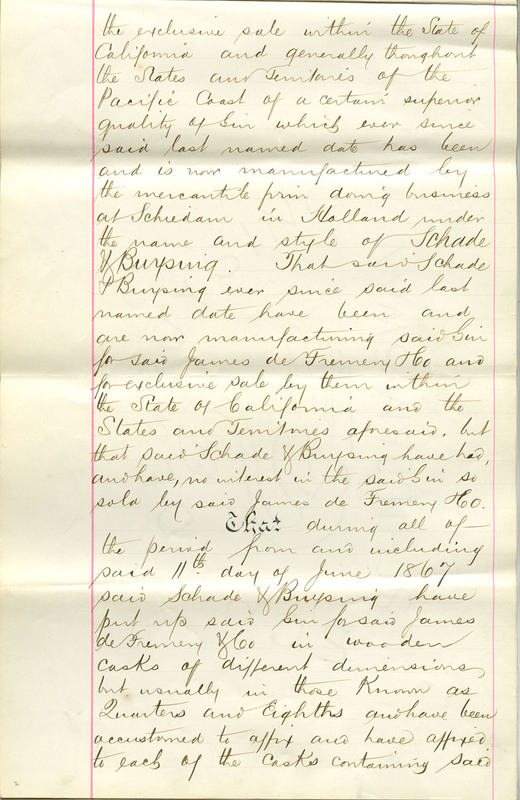 the exclusive sale within the State of
California and generally throughout
the States and Territories of the
Pacific Coast of a certain superior
quality of Gin which ever since
said last named date has been
and is now manufactured by
the mercantile firm doing business
at Schiedam in Holland under
the name and style of Schade
& Buysing. That said Schade
& Buysing ever since said last
named date have been and
are now manufacturing said Gin
for said James de Fremery & Co and
for exclusive sale by them within
the State of California and the
States and Territories aforesaid, but
that said Schade & Buysing have had,
and have, no interest in the said Gin so
sold by said James de Fremery & Co.
That during all of
the period from and including
said 11th day of June 1867
said Schade & Buysing have
put up said Gin for said James
de Fremery & Co in wooden
casks of different dimensions,
but usually in those Known as
Quarters and Eighths and have been
accustomed to affix and have affixed
to each of the casks containing said